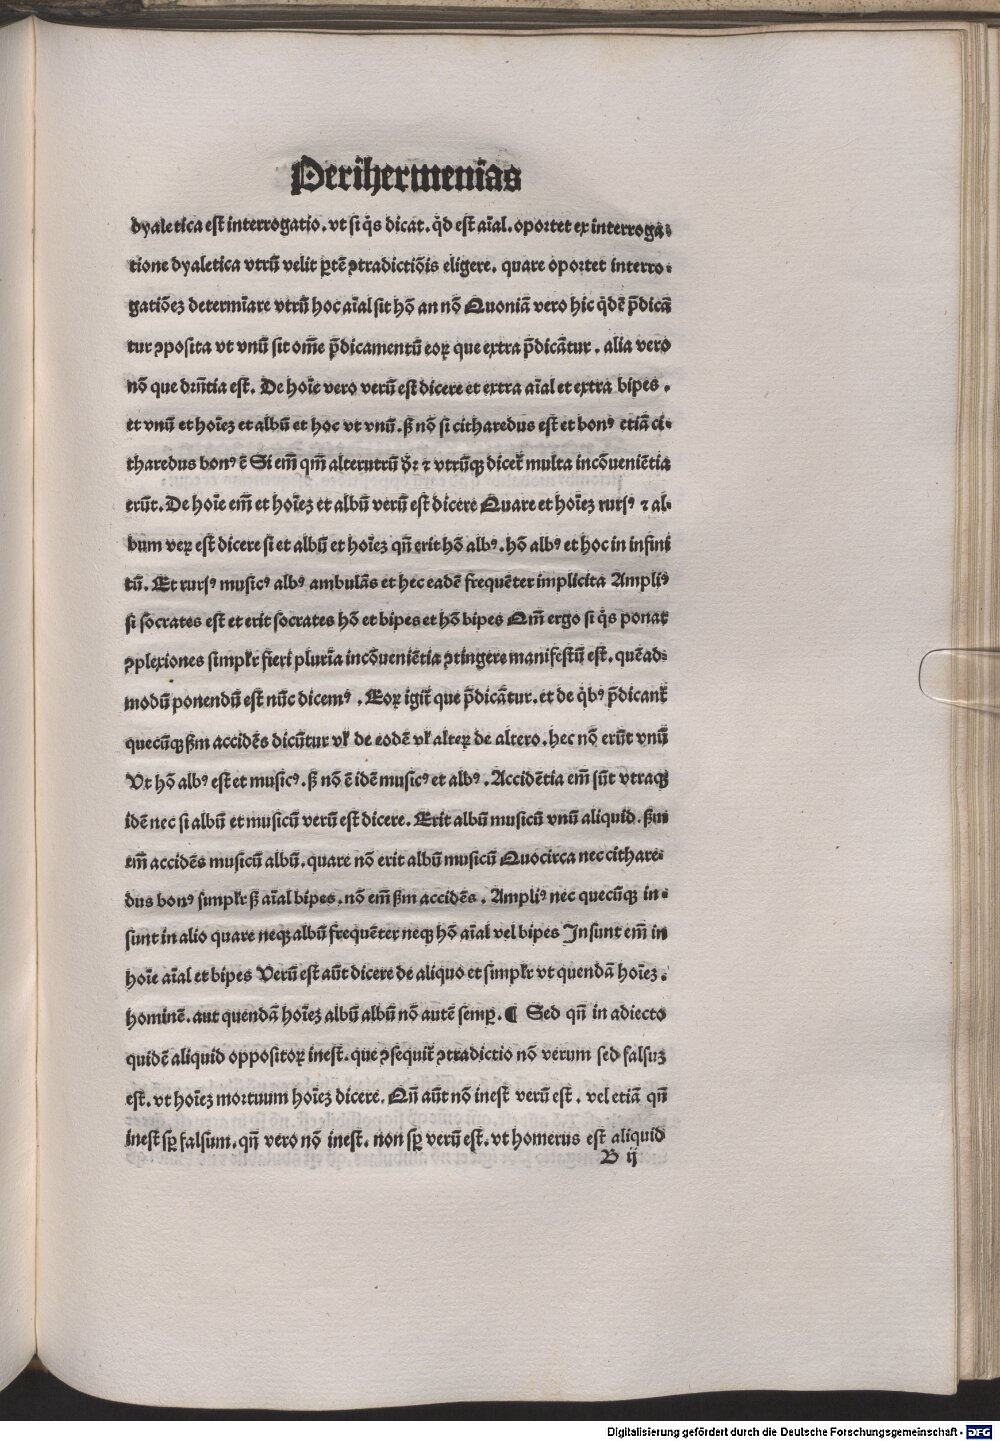 Perihermenias
dyaletica est̄ interrogatio. vt si q̇s dicat. q̇d est̄ aīal. oportet ex interroga⸗
tione dyaletica vtrū velit ꝑtē ꝯtradictiōis eligere. quare oportet interro⸗
gatiōeꝫ determīare vtrū hoc aīal sit hō an nō Quoniā vero hic q̇dē p̄dicā
tur ꝯposita vt vnū sit om̄e p̄dicamentū eoꝝ que extra p̄dicātur. alia vero
nō que dr̄ntia est̄. De hoīe vero verū est̄ dicere et extra aīal et extra bipes.
et vnū et hoīeꝫ et albū et hoc vt vnū. ſꝫ nō si citharedus est̄ et bonꝰ etiā ci⸗
tharedus bonꝰ ē Si em̄ qm̄ alterutrū ꝛ vtrūqꝫ dicer̄ multa incōueniētia
erūt. De hoīe em̄ et hoīeꝫ et albū verū est̄ dicere Quare et hoīeꝫ rursꝰ ꝛ al⸗
bum veꝝ est̄ dicere si et albū et hoīeꝫ qn̄ erit hō albꝰ. hō albꝰ et hoc in infini
tū. Et rursꝰ musicꝰ albꝰ ambulās et hec eadē frequēter implicita Ampliꝰ
si socrates est et erit socrates hō et bipes et hō bipes Qm̄ ergo si q̇s ponat
ꝯplexiones simplr̄ fieri plurīa incōueniētia ꝯtingere manifestū est. quēad⸗
modū ponendū est nūc dicemꝰ. Eoꝝ igit̄ que p̄dicātur. et de q̇bꝰ p̄dicant̄
quecūqꝫ ſm̄ accidēs dicūtur vl̄ de eodē vl̄ alteꝝ de altero. hec nō erūt vnū
Vt hō albꝰ est̄ et musicꝰ. ſꝫ nō ē idē musicꝰ et albꝰ. Accidētia em̄ sūt vtraqꝫ
idē nec si albū et musicū verū est̄ dicere. Erit albū musicū vnū aliquid. ſm̄
em̄ accidēs musicū albū. quare nō erit albū musicū Quocirca nec cithare⸗
dus bonꝰ simplr̄ ſꝫ aīal bipes. nō em̄ ſm̄ accidēs. Ampliꝰ nec quecūqꝫ in⸗
sunt in alio quare neqꝫ albū frequēter neqꝫ hō aīal vel bipes Insunt em̄ in
hoīe aīal et bipes Verū est aūt dicere de aliquo et simplr̄ vt quendā hoīeꝫ.
hominē. aut quendā hoīeꝫ albū albū nō autē semꝑ. ¶ Sed qn̄ in adiecto
quidē aliquid oppositoꝝ inest̄. que ꝯsequit̄ ꝯtradictio nō verum sed falsuꝫ
est̄. vt hoīeꝫ mortuum hoīeꝫ dicere. Qn̄ aūt nō inest̄ verū est̄. vel etiā qn̄
inest̄ sꝑ falsum. qn̄ vero nō inest̄. non sꝑ verū est̄. vt homerus est̄ aliquid
B ij
Digitalisierung gefördert durch die Deutsche Forschungsgemeinschaft - DFG